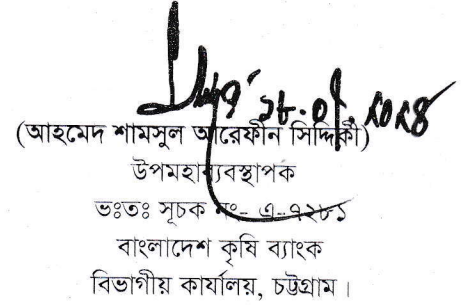 ২৮.০৭.২০২৪
(আহমেদ শামসুল আরেফীন সিদ্দিকী)
উপমহাব্যবস্থাপক
ভঃতঃ সূচক নং- এ-৭২৮১
বাংলাদেশ কৃষি ব্যাংক
বিভাগীয় কার্যালয়, চট্টগ্রাম।